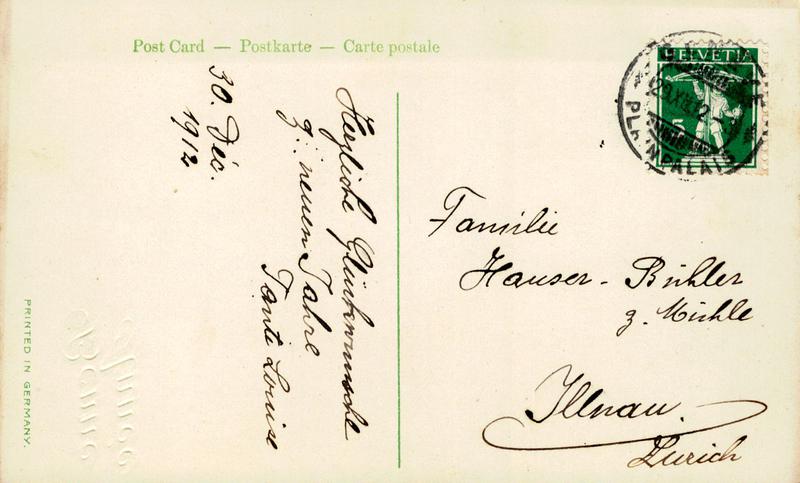 Post Card — Postkarte — Carte postale
30. Déc.
1912
Herzliche Glückwünsche
z. neuen Jahre
Tante Louise
HELVETIA
5
PLAINPALAIS
Familie
Hauser - Bühler
z. Mühle
Illnau.
Zürich
PRINTED IN GERMANY.